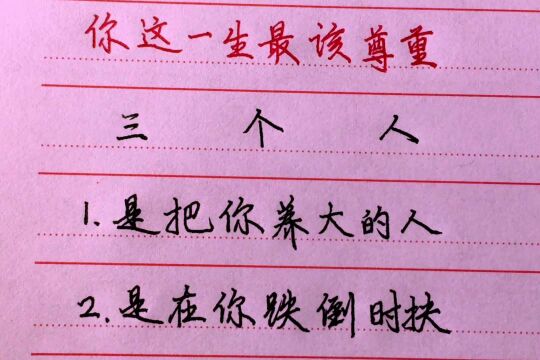 你这一生最该尊重
三个人
1.是把你养大的人
2.是在你跌倒时扶